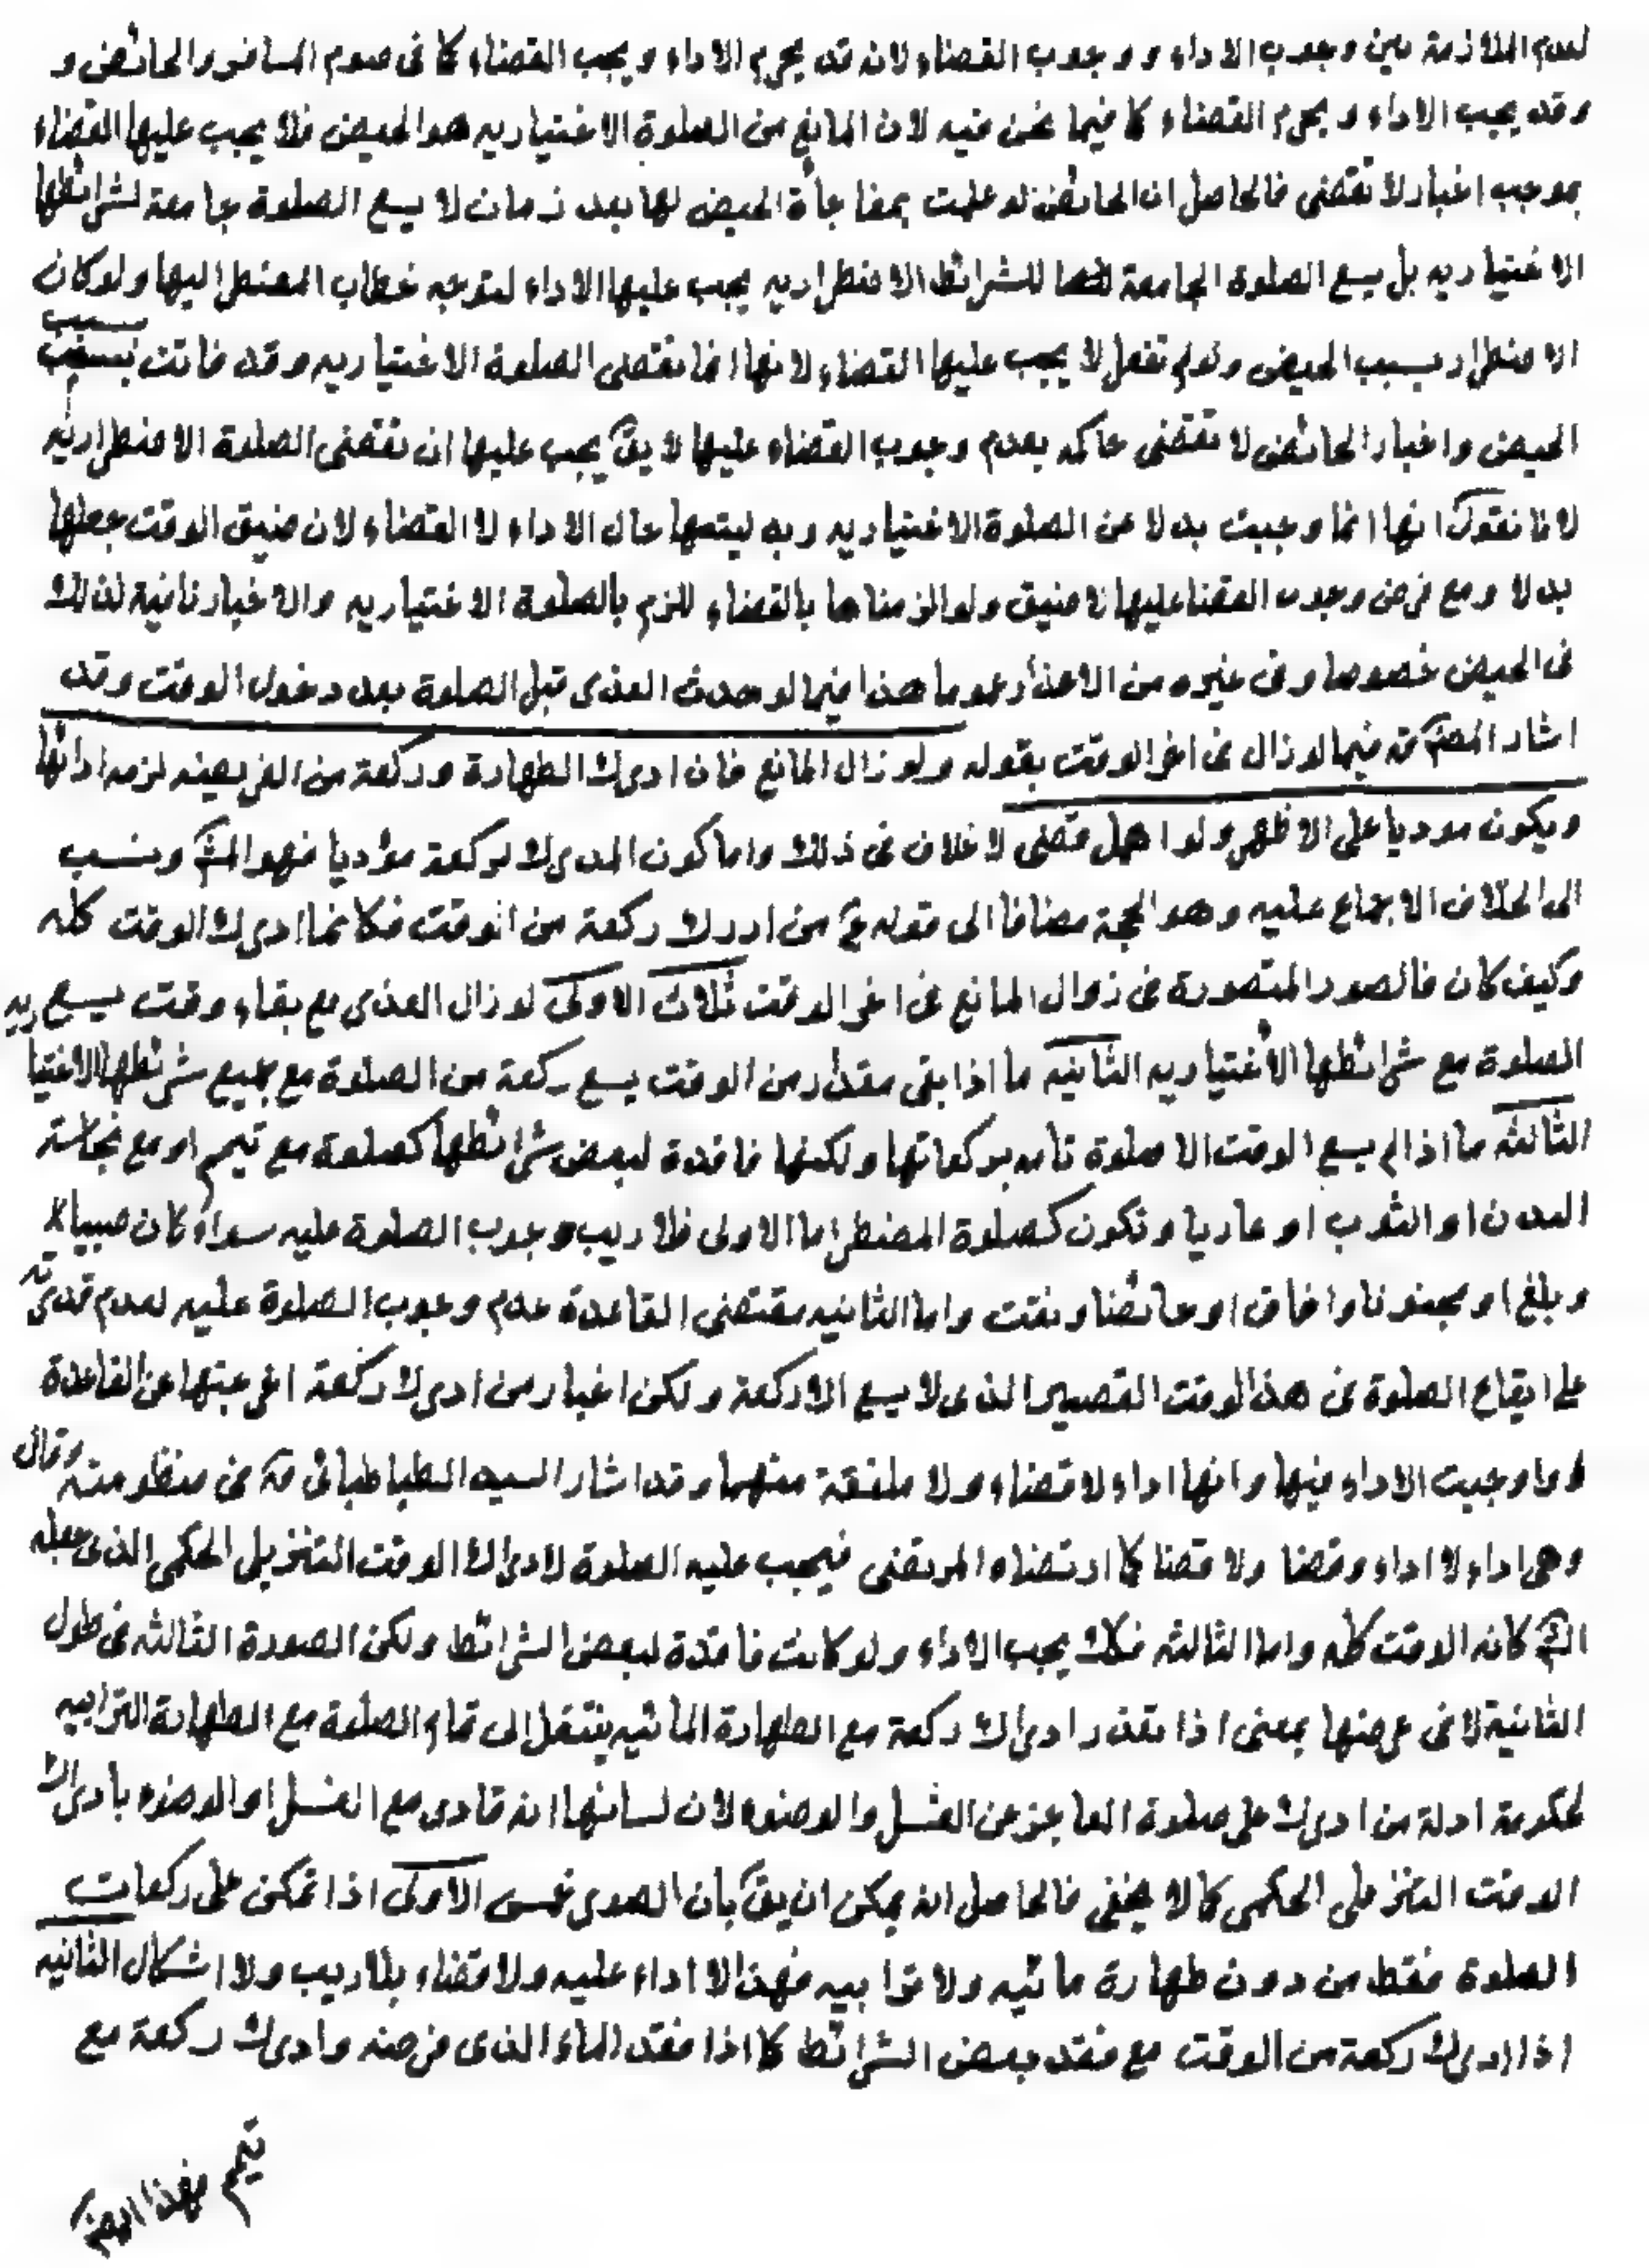 لعدم الملازمة بين وجوب الاداء ووجوب القضاء لانه قد يحرم الاداء ويجب القضاء كما فى صوم المسافر والحائض و
وقد يجب الاداء ويحرم القضاء كما فيما نحن فيه لان المانع من الصلوة الاختياريه هو الحيض فلا يجب عليها القضاء
بموجب اخبار لا تقتضى فالحاصل ان الحائض لو علمت بمفاجأة الحيض لها بعد زمان لا يسع الصلوة جامعة لشرائطها
الاختياريه بل يسع الصلوة الجامعة للشرائط الاضطراريه يجب عليها الاداء لتوجه خطاب المضطر اليها ولو كان
الاضطرار بسبب الحيض ولو لم تفعل لا يجب عليها القضاء لانها انما تقضى الصلوة الاختياريه وقد فاتت بسبب
الحيض واخبار الحائض لا تقضى حاكمه بعدم وجوب القضاء عليها لا يقٓ يجب عليها ان تقضى الصلوة الاضطراريه
لانا نقول انها انما وجبت بدلا عن الصلوة الاختياريه وبدليتها حال الاداء لا القضاء لان ضيق الوقت جعلها
بدلا ومع فرض وجوب القضا عليها لا ضيق ولو الزمناها بالقضاء للزم بالصلوة الاختياريه والاخبار نافية لذلك
فى الحيض خصوصا وفى غيره من الاعذار عموما هذا فيما لو حدث العذر قبل الصلوة بعد دخول الوقت وقد
اشار المصٓ قه فيما لو زال فى اخر الوقت بقوله ولو زال المانع فان ادرك الطهارة وركعة من الفريضه لزمه ادائها
ويكون موديا على الاظهر ولو اهمل قضى لا خلاف فى ذلك واما كون المدرك لركعة مؤديا فهو المشٓ ونسب
الى الخلاف الاجماع عليه وهو الحجة مضافا الى قوله ع من ادرك ركعة من الوقت فكانما ادرك الوقت كله
وكيف كان فالصور المتصورة فى زوال المانع فى اخر الوقت ثلاث الاولى لو زال العذر مع بقاء وقت يسع
الصلوة مع شرائطها الاختياريه الثانيه ما اذا بقى مقدار من الوقت يسع ركعة من الصلوة مع جميع شرائطها الاختياريه
الثالثه ما اذا لم يسع الوقت الا صلوة تامه بركعاتها ولكنها فاقدة لبعض شرائطها كصلوة مع تيمم او مع نجاسة
البدن او الثوب او عاريا وتكون كصلوة المضطر اما الاولى فلا ريب بوجوب الصلوة عليه سواء كان صبيا
وبلغ او مجنونا وافاق او حائضا ونقت واما الثانيه مقتضى القاعدة عدم وجوب الصلوة عليه لعدم قدرته
على ايقاع الصلوة فى هذا الوقت القصير الذى لا يسع الا ركعة ولكن اخبار من ادرك ركعة اخرجتها عن القاعدة
واوجبت الاداء فيها وانها اداء لا قضاء ولا ملفقة منهما وقد اشار السيد الطباطبائى قه فى منظومته وقال
وهى اداء لا اداء وقضا ولا قضا كما ارتضاه المرتضى فيجب عليه الصلوة لادراك الوقت التنزيلى الحكمى الذى جعله
الشٓ كانه الوقت كله واما الثالثه فكذلك يجب الاداء ولو كانت فاقدة لبعض الشرائط ولكن الصورة الثالثه فى طول
الثانية لا فى عرضها بمعنى اذا تعذر ادراك ركعة مع الطهارة المائيه ينتقل الى تمام الصلوة مع الطهارة الترابيه
لحكومة ادلة من ادرك على صلوة العاجز عن الغسل والوضوء لان لسانها انه قادر مع الغسل او الوضوء بادراك
الوقت التنزيلى الحكمى كما لا يخفى فالحاصل انه يمكن ان يقٓ بان الصور خمس الاولى اذا تمكن على ركعات
الصلوة فقط من دون طهارة مائيه ولا ترابيه فهذا لا اداء عليه ولا قضاء بلا ريب ولا اشكال الثانيه
اذا ادرك ركعة من الوقت مع فقد بعض الشرائط كما اذا فقد الماء الذى فرضه وادرك ركعة مع
تيمم فهذا